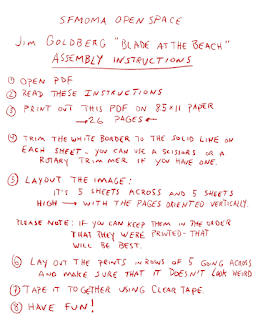 SFMOMA OPEN SPACE
JIM GOLDBERG "BLADE AT THE BEACH"
ASSEMBLY INSTRUCTIONS
① OPEN PDF
② READ THESE INSTRUCTIONS
③ PRINT OUT THIS PDF ON 85x11 PAPER
→26 PAGES←
④ TRIM THE WHITE BORDER TO THE SOLID LINE ON
EACH SHEET - YOU CAN USE A SCISSORS OR A
ROTARY TRIMMER IF YOU HAVE ONE.
⑤ LAYOUT THE IMAGE:
IT'S 5 SHEETS ACROSS AND 5 SHEETS
HIGH → WITH THE PAGES ORIENTED VERTICALLY.
PLEASE NOTE: IF YOU CAN KEEP THEM IN THE ORDER
THAT THEY WERE PRINTED - THAT
WILL BE BEST.
⑥ LAY OUT THE PRINTS IN ROWS OF 5 GOING ACROSS
AND MAKE SURE THAT IT DOESN'T LOOK WEIRD
⑦ TAPE IT TOGETHER USING CLEAR TAPE.
⑧ HAVE FUN!